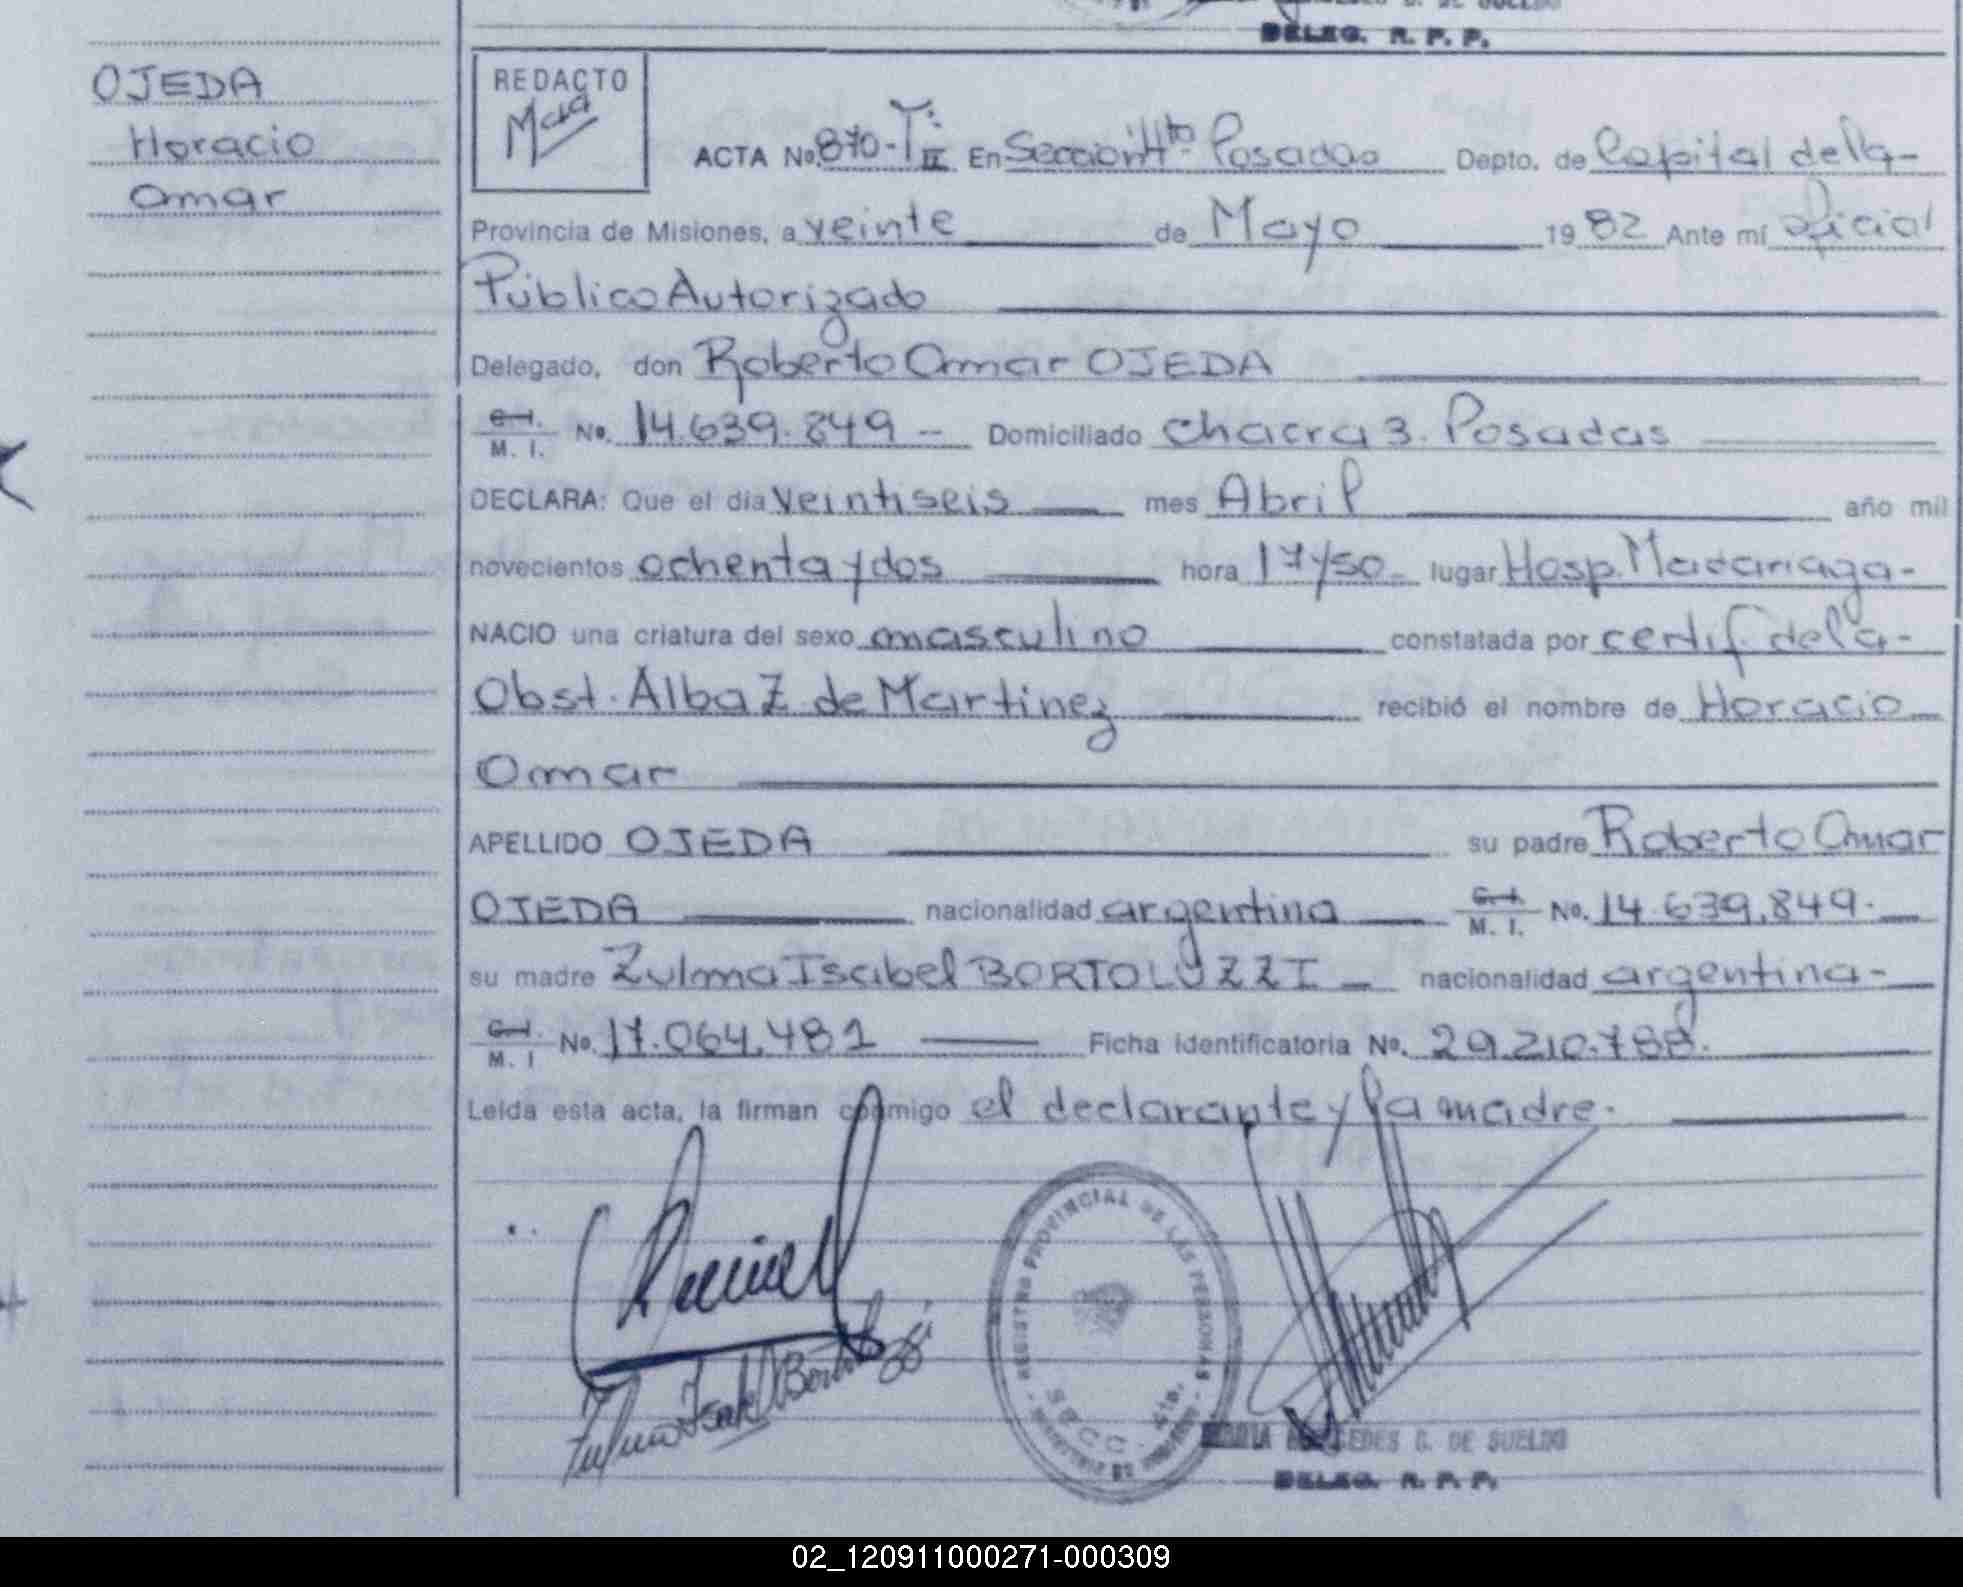 DELEG. R. P. P.
OJEDA
Horacio
Omar
REDACTO
ACTA No. 870-Tº II En Sección 4ta. Posadas Depto. de Capital de la-
Provincia de Misiones, a veinte de Mayo 1982 Ante mí Oficial
Público Autorizado
Delegado, don Roberto Omar OJEDA
C.I. M. I. No. 14.639.849 - Domiciliado Chacra 3. Posadas
DECLARA: Que el día veintiseis mes Abril año mil
novecientos ochenta y dos hora 17/50- lugar Hosp. Madariaga-
NACIO una criatura del sexo masculino constatada por certif. de la-
Obst. Alba Z. de Martinez recibió el nombre de Horacio
Omar
APELLIDO OJEDA su padre Roberto Omar
OJEDA nacionalidad argentina C.I. M. I. No. 14.639.849.
su madre Zulma Isabel BORTOLUZZI nacionalidad argentina-
C.I. M. I No. 17.064.481 Ficha identificatoria No. 29.210.788.
Leída esta acta, la firman conmigo el declarante y la madre.
REGISTRO PROVINCIAL DE LAS PERSONAS
SECC. 4ta.
Zulma Isabel Bortoluzzi
MERCEDES G. DE SUELDO
DELEG. R. P. P.
02_120911000271-000309